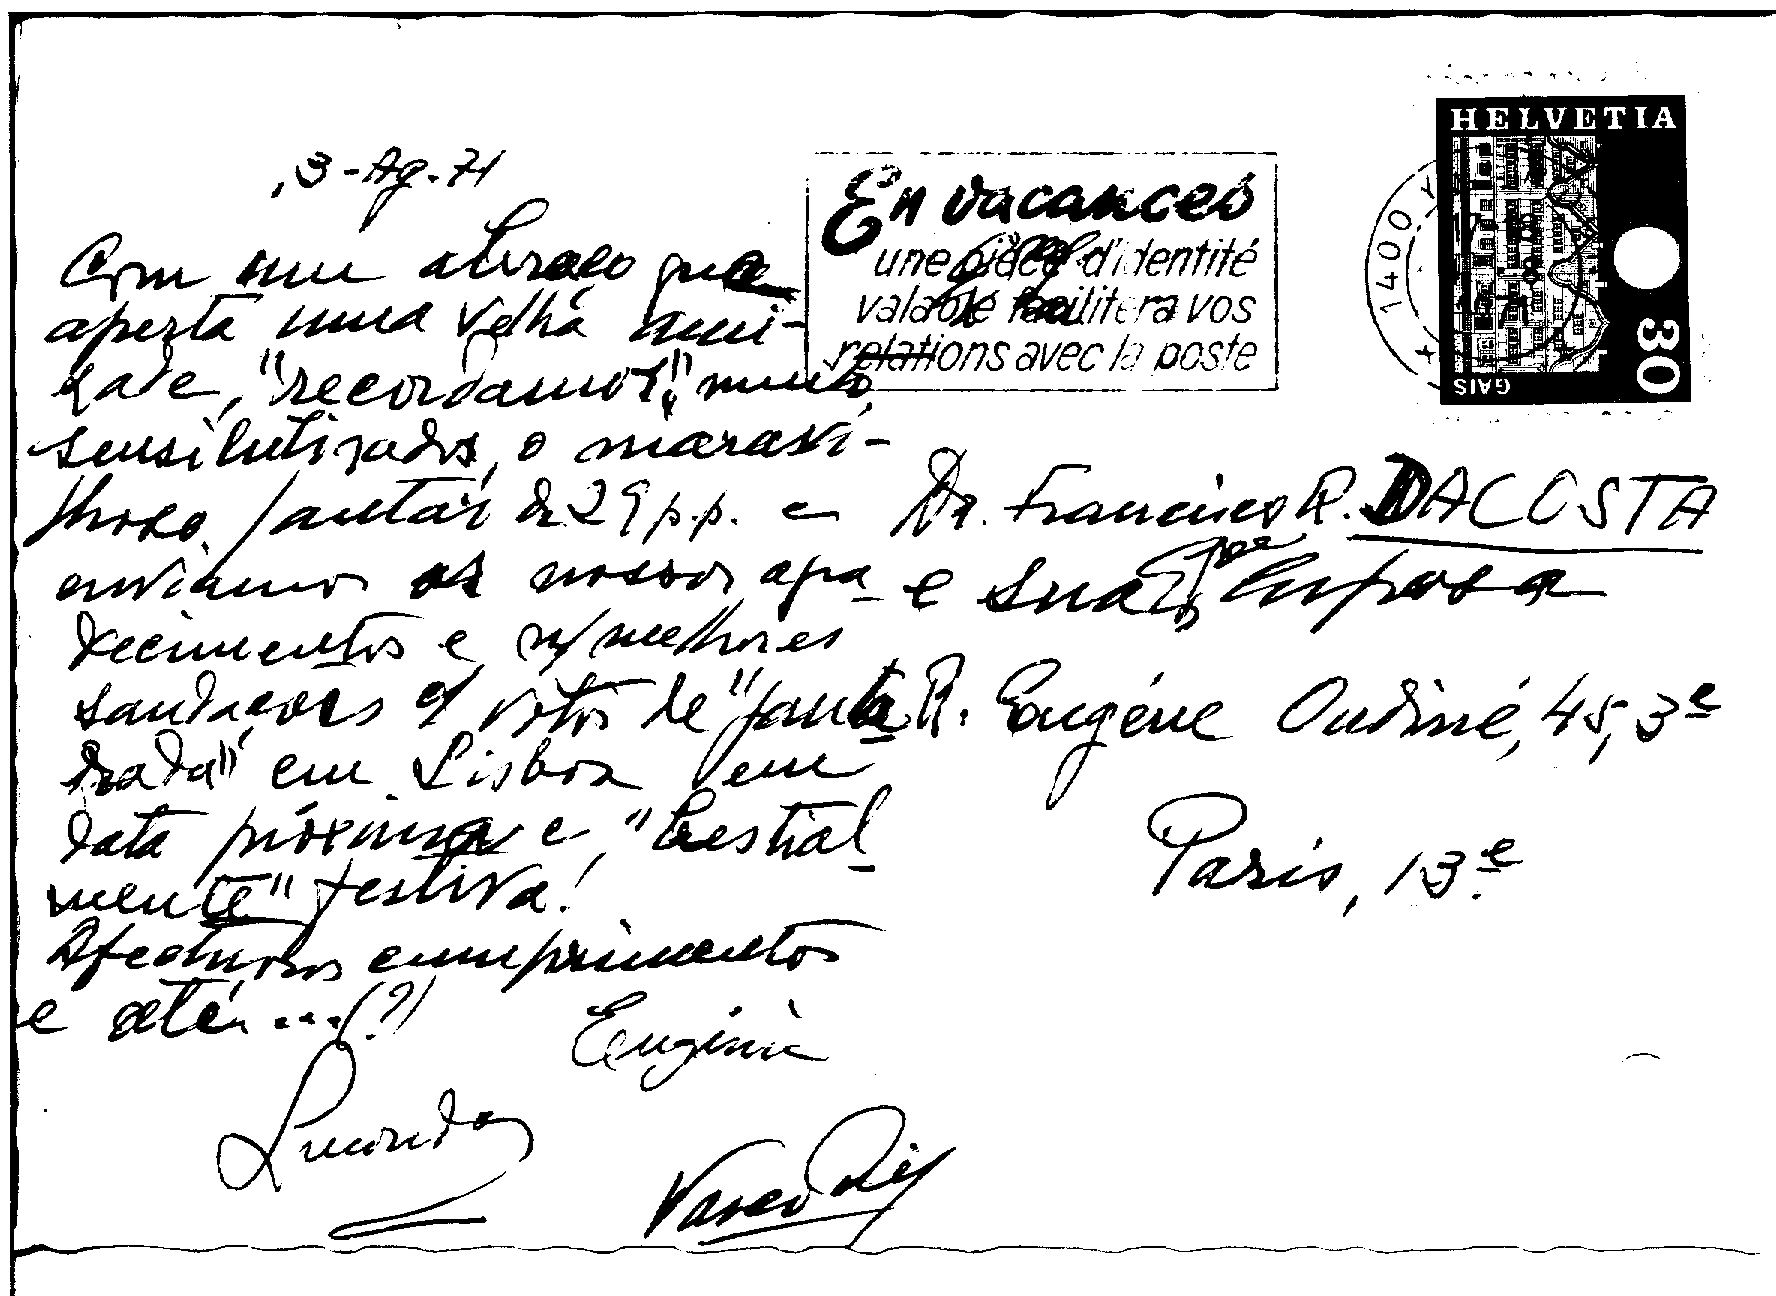 3-Ag-71
Com um abraço que
aperta uma velha ami-
zade, "recordamos", muito
sensibilizados, o maravi-
lhoso jantar de 29 p.p. e
enviamos os nossos agra-
decimentos e n/melhores
saudações e votos de "janta-
rada" em Lisboa em
data próxima e "bestial-
mente" festiva!
Afectuosos cumprimentos
e até ... (?)
Eugénia
Vasco
En vacances
une pièce d'identité
valable facilitera vos
relations avec la poste
HELVETIA
30
GAIS
1400 Y
Dr. Francisco R. DACOSTA
e sua Esposa
R. Eugéne Oudiné, 45, 3e
Paris, 13.e